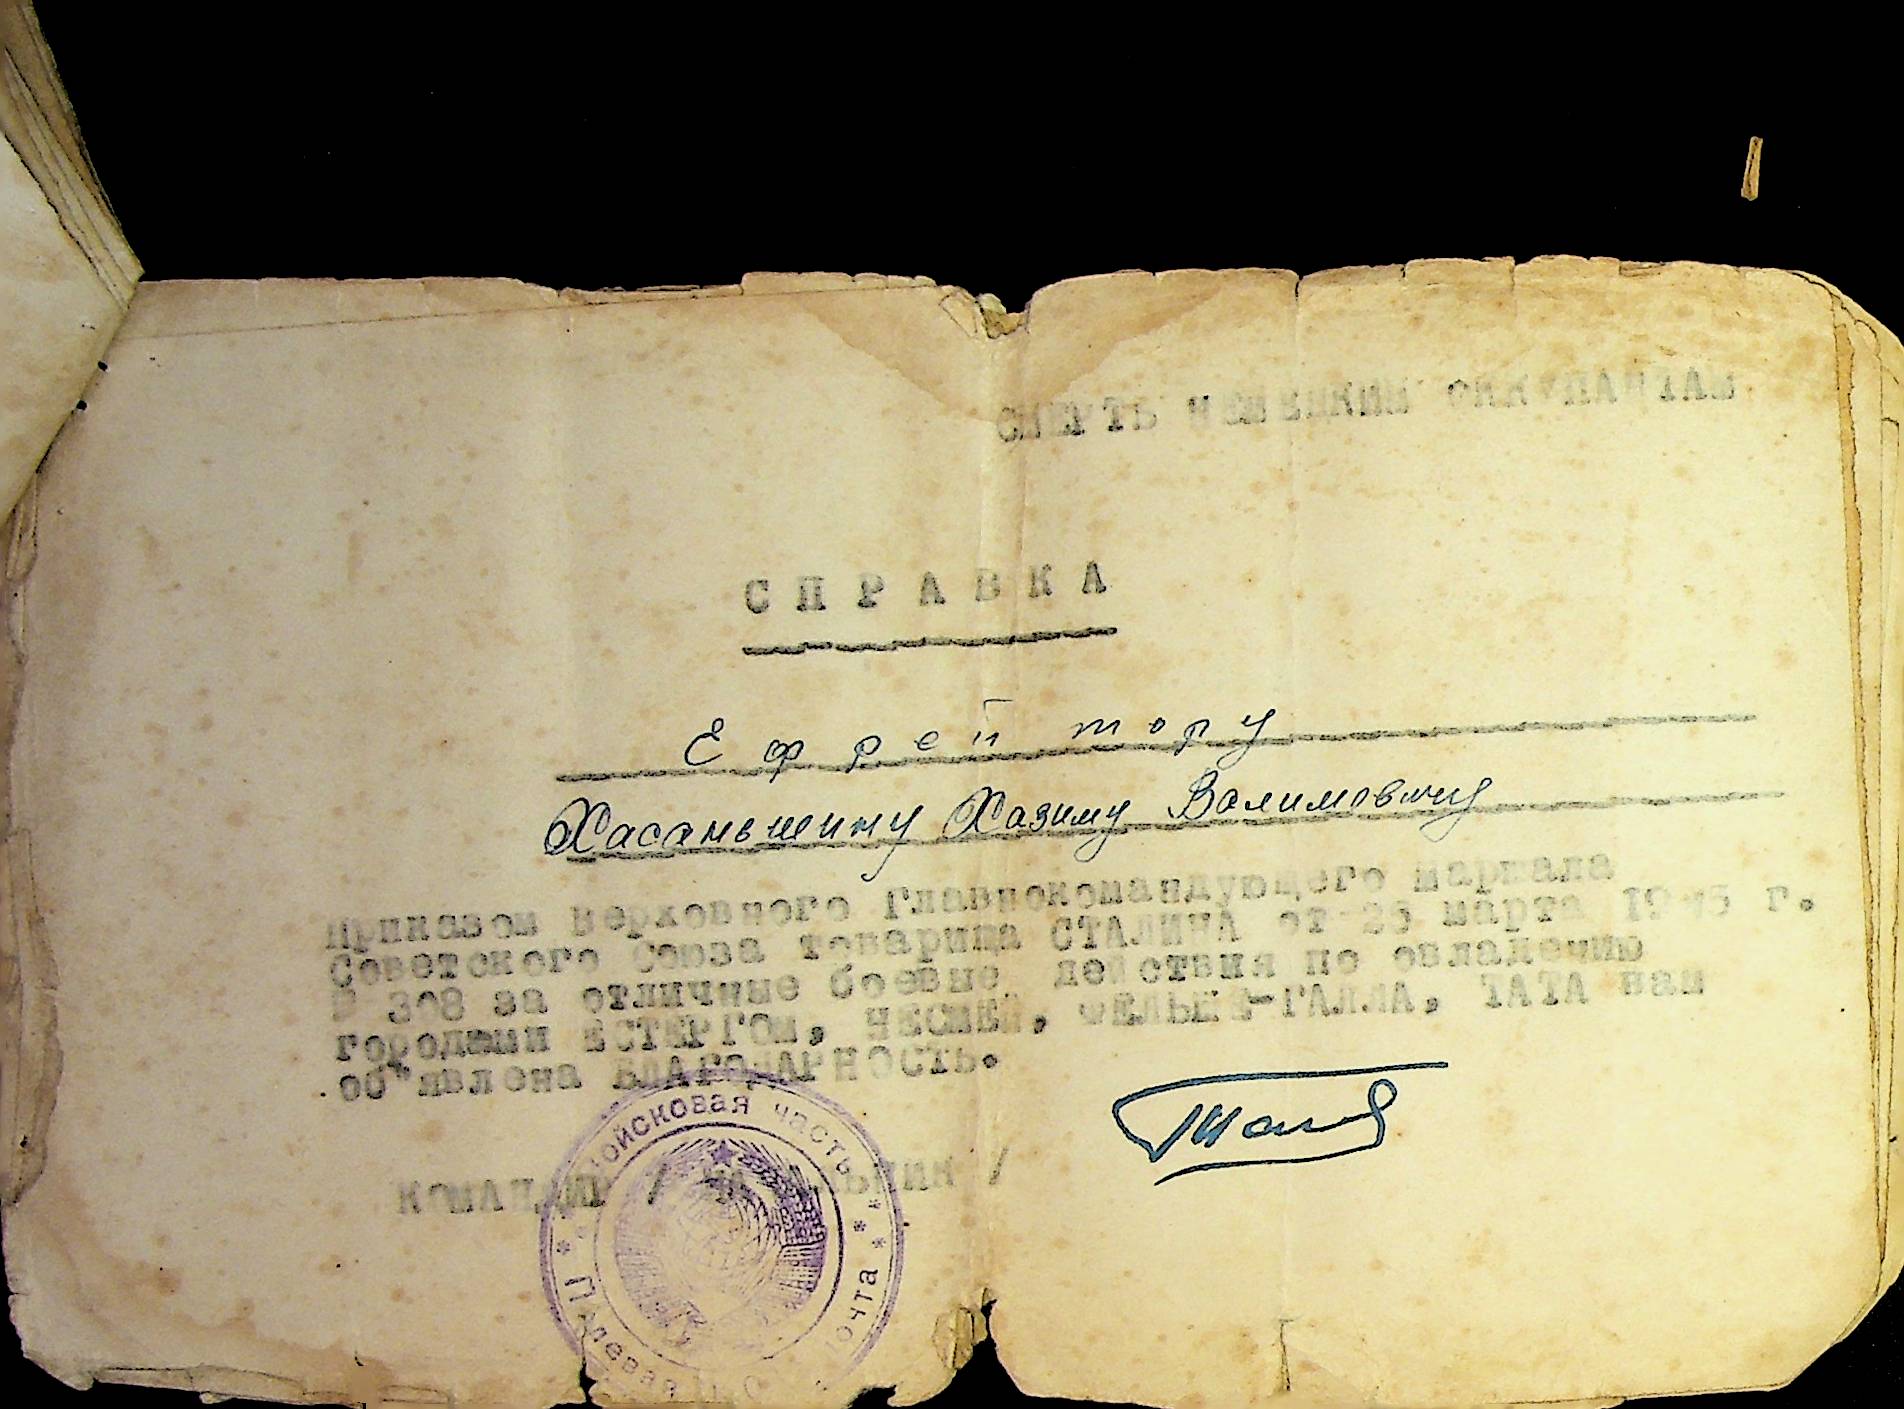 СМЕРТЬ НЕМЕЦКИМ ОККУПАНТАМ
СПРАВКА
Ефрейтору
Хасаньшину Хазиму Валимовичу
Приказом Верховного Главнокомандующего маршала
Советского Союза товарища СТАЛИНА от 25 марта 1945 г.
№ 308 за отличные боевые действия по овладению
городами ЕСТЕРГОМ, НЕСМЕЙ, ФЕЛЬШЕ-ГАЛЛА, ТАТА вам
об"явлена БЛАГОДАРНОСТЬ.
КОМАНДИР / НАЧАЛЬНИК /
Войсковая часть
* Полевая почта *